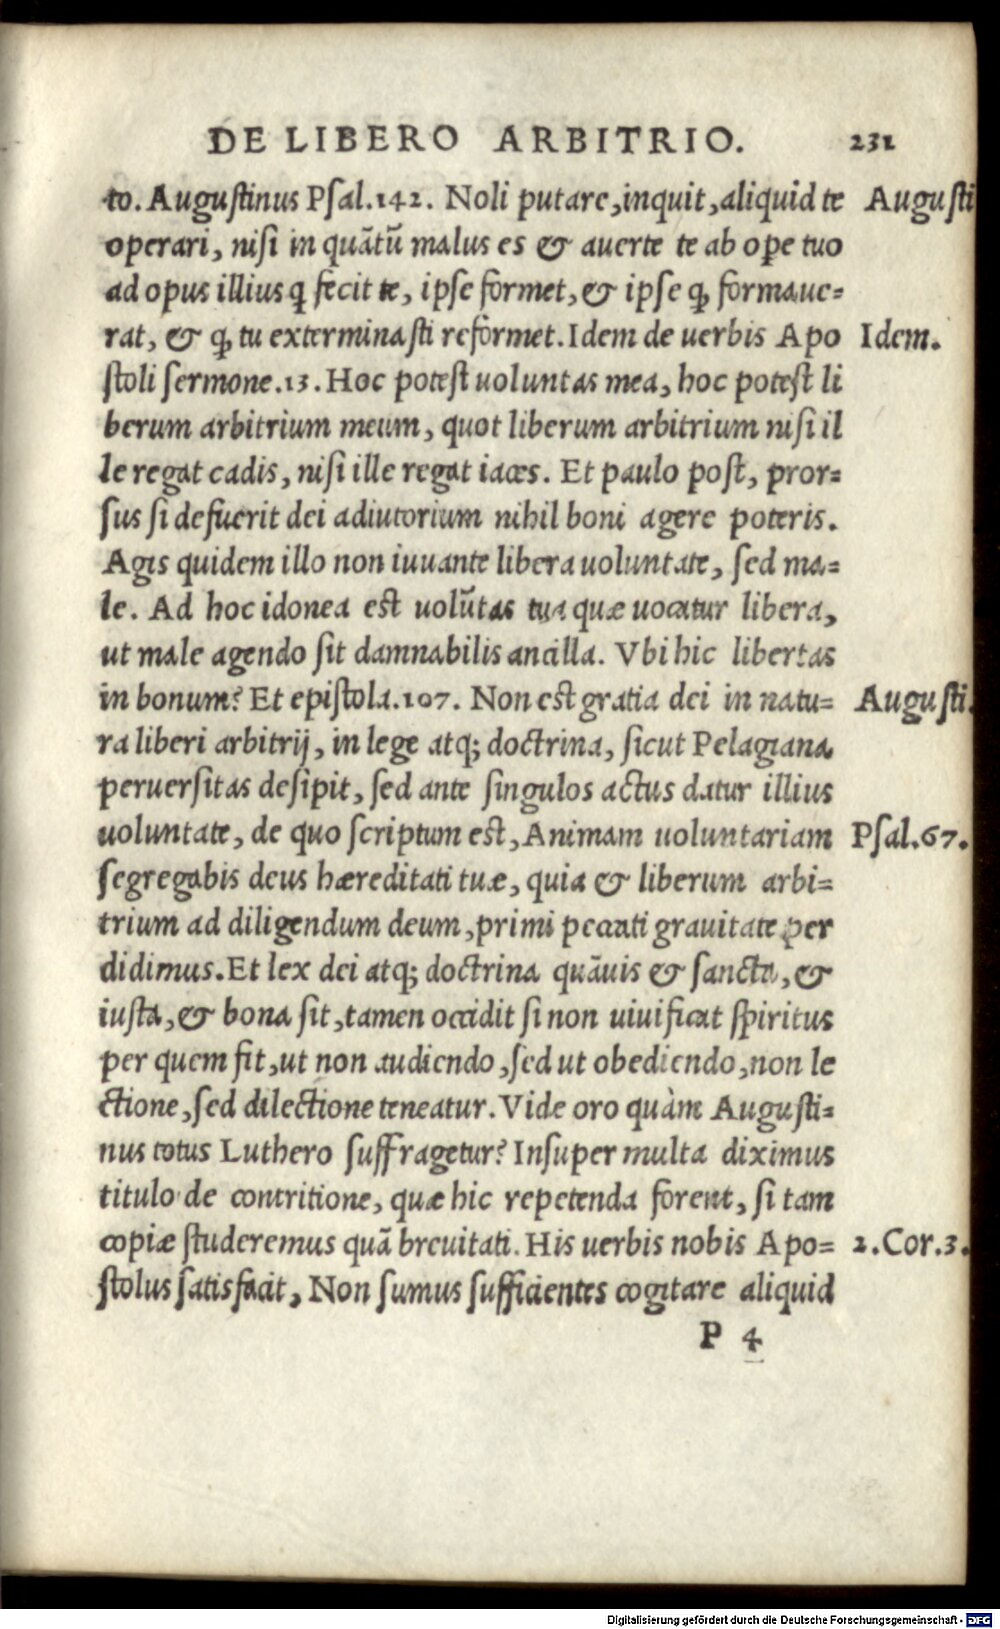 DE LIBERO ARBITRIO. 231
to. Augustinus Psal.142. Noli putare, inquit, aliquid te Augusti
operari, nisi in quātū malus es & auerte te ab ope tuo
ad opus illius q fecit te, ipse formet, & ipse ꝙ formaue=
rat, & ꝙ tu exterminasti reformet. Idem de uerbis Apo Idem.
stoli sermone.13. Hoc potest uoluntas mea, hoc potest li
berum arbitrium meum, quot liberum arbitrium nisi il
le regat cadis, nisi ille regat iaces. Et paulo post, pror=
sus si defuerit dei adiutorium nihil boni agere poteris.
Agis quidem illo non iuuante libera uoluntate, sed ma=
le. Ad hoc idonea est uolūtas tua quæ uocatur libera,
ut male agendo sit damnabilis ancilla. Vbi hic libertas
in bonum? Et epistola.107. Non est gratia dei in natu= Augusti.
ra liberi arbitrij, in lege atq; doctrina, sicut Pelagiana
peruersitas desipit, sed ante singulos actus datur illius
uoluntate, de quo scriptum est, Animam uoluntariam Psal.67.
segregabis deus hæreditati tuæ, quia & liberum arbi=
trium ad diligendum deum, primi peccati grauitate per
didimus. Et lex dei atq; doctrina quāuis & sancta, &
iusta, & bona sit, tamen occidit si non uiuificat spiritus
per quem fit, ut non audiendo, sed ut obediendo, non le
ctione, sed dilectione teneatur. Vide oro quàm Augusti=
nus totus Luthero suffragetur? Insuper multa diximus
titulo de contritione, quæ hic repetenda forent, si tam
copiæ studeremus quā breuitati. His uerbis nobis Apo= 2.Cor.3.
stolus satisfacit, Non sumus sufficientes cogitare aliquid
P 4
Digitalisierung gefördert durch die Deutsche Forschungsgemeinschaft - DFG